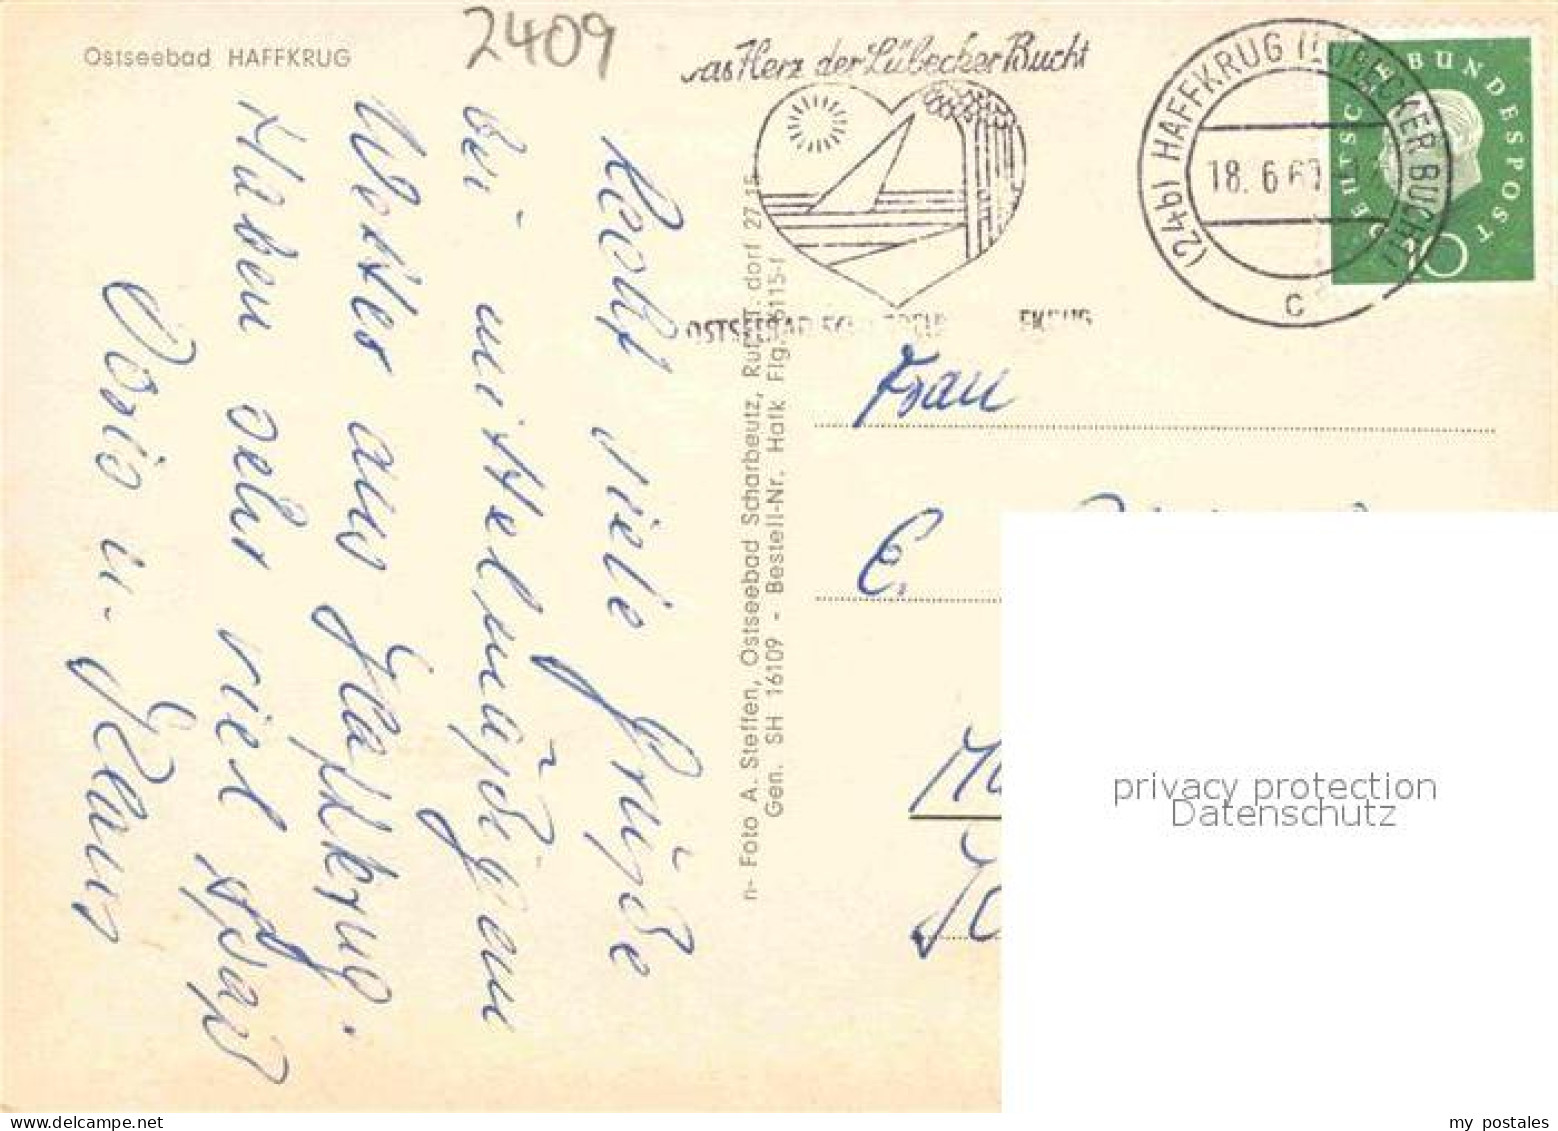 Ostseebad HAFFKRUG
2409
as Herz der Lübecker Bucht
(24b) HAFFKRUG (LÜBECKER BUCHT)
18. 6 60
c
DEUTSCHE BUNDESPOST
10
Recht viele Grüße
bei mittelmäßigem
Wetter aus Haffkrug.
Haben sehr viel Spaß
Doris u. Klaus
n- Foto A. Steffen, Ostseebad Scharbeutz, Ruf dorf 27 15
Gen. SH 16109 - Bestell-Nr. Hafk Flg. 6115-f
Frau
E.
privacy protection
Datenschutz
my postales